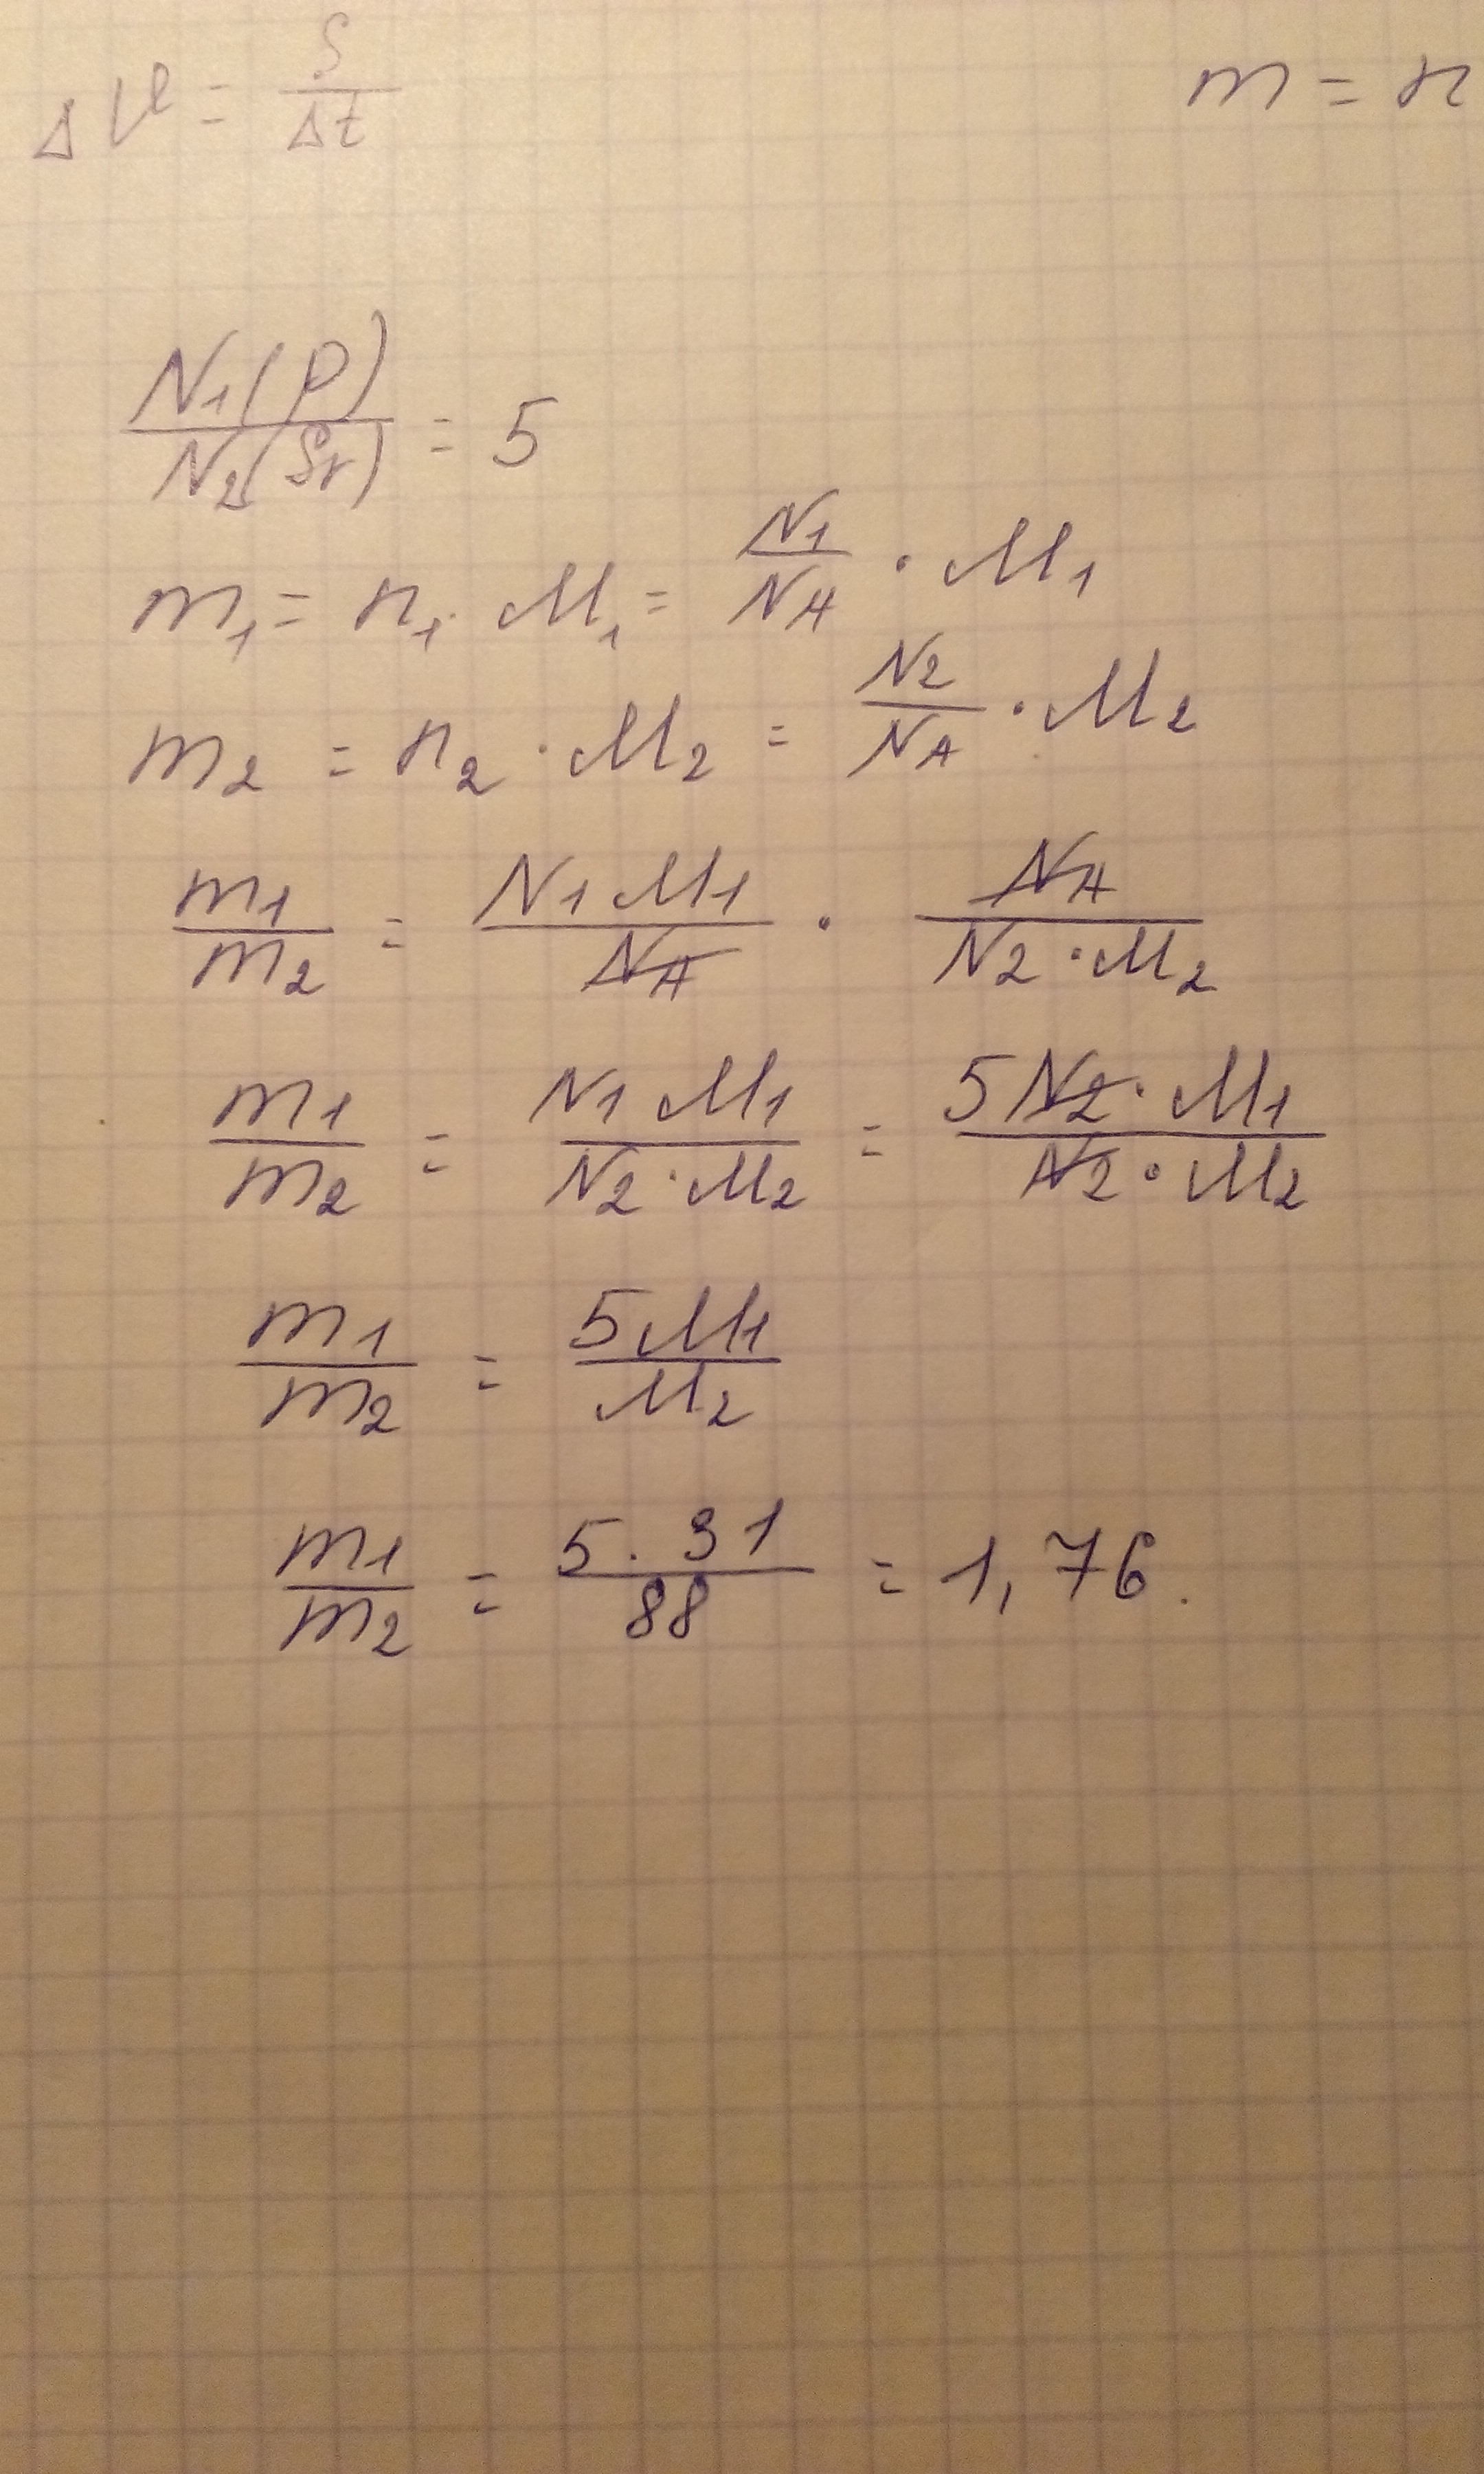 ΔV = S/Δt
m = n
N1(P)/N2(Sr) = 5
m1 = n1 · M1 = N1/NA · M1
m2 = n2 · M2 = N2/NA · M2
m1/m2 = N1 M1/NA · NA/N2 · M2
m1/m2 = N1 M1/N2 · M2 = 5N2 · M1/N2 · M2
m1/m2 = 5M1/M2
m1/m2 = 5 · 31/88 = 1,76.